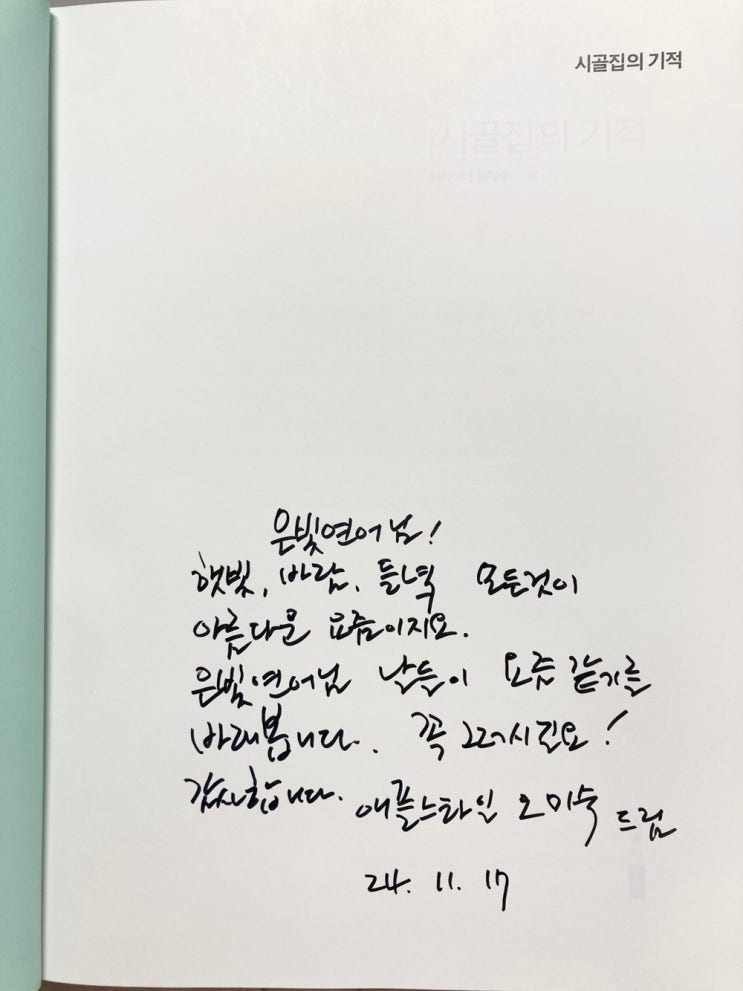 시골집의 기적
시골집의 기적
은빛연어님!
햇빛, 바람, 들녘 모든것이
아름다운 요즘이지요.
은빛연어님 날들이 요즘 같기를
바래봅니다. 꼭 그러시길요!
감사합니다. 애플스타일 오미숙 드림
24. 11. 17